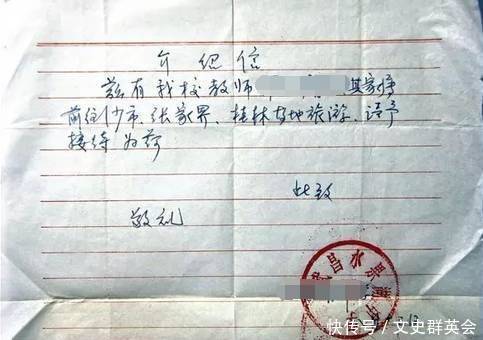 介绍信
兹有我校教师 其家属
前往沙市、张家界、桂林等地旅游、请予
接待为荷
此致
敬礼
昌水果湖
快传号/文史群英会